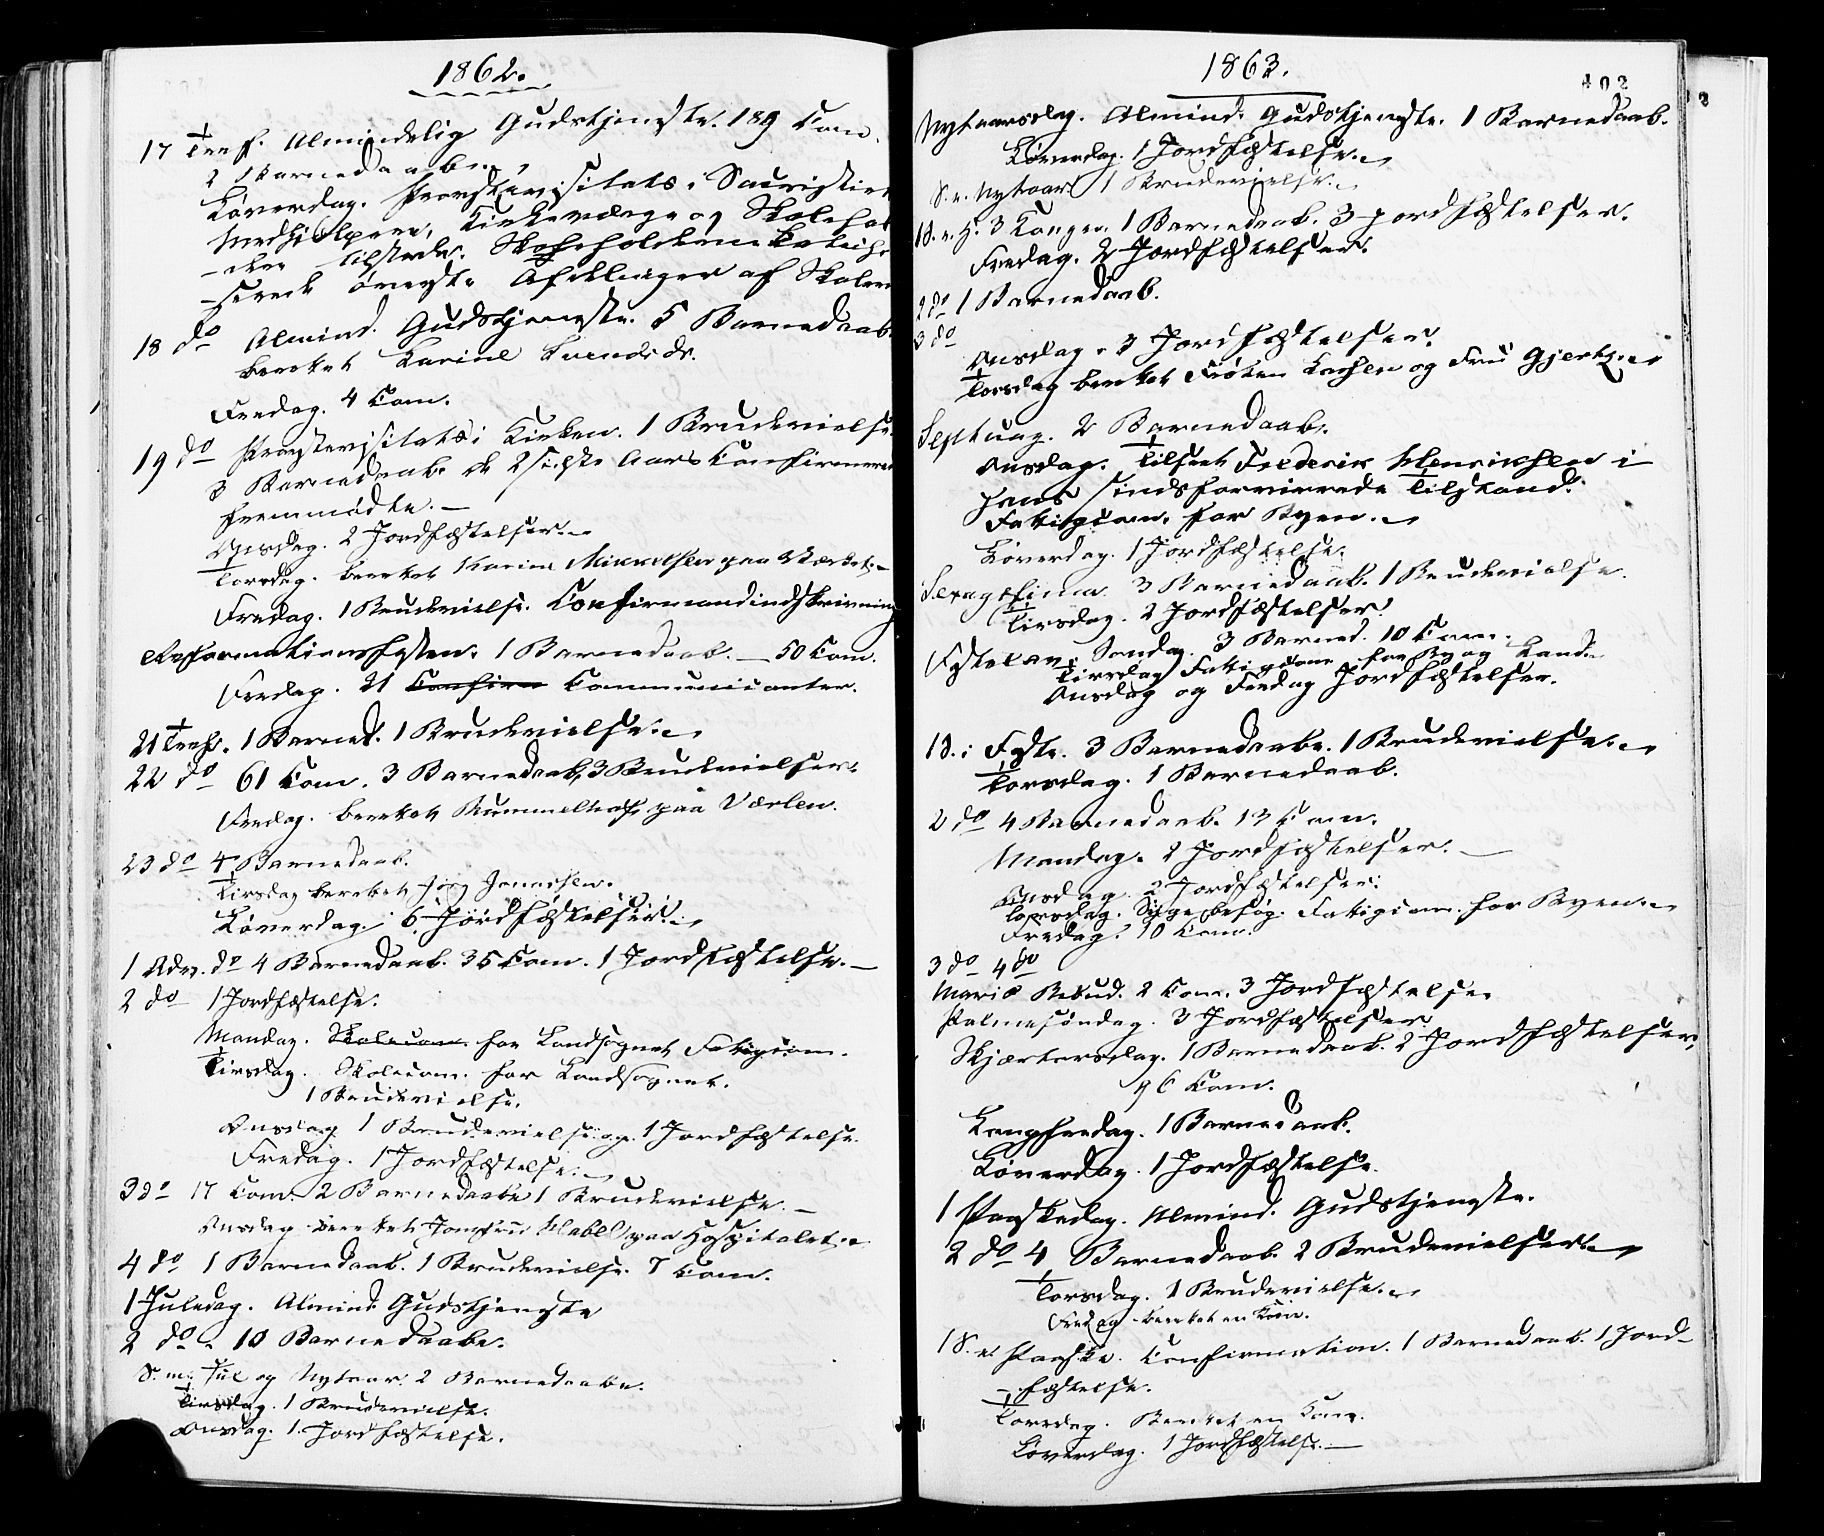 1862.
17 Tref. Almindelig Gudstjeneste. 189 Com.
2 Barnedaabe.
Løverdag. Provstevisitats i Sacristiet
Medhjelpere, Kirkeværge og Skolehol
-dere tilstede. Skoleholderne
Afdelinger af Skolen
18 do Almind. Gudstjeneste. 5 Barnedaab
berettet Karine Svendsdr.
Fredag. 4 Com.
19 do Provstevisitats i Kirken. 1 Brudevielse.
3 Barnedaab. de 2 sidste Aars Confirmerede
fremmødte. —
Onsdag. 2 Jordfæstelser.
Torsdag. berettet Karine Mikkelsen paa Værket. —
Fredag. 1 Brudevielse. Confirmandindskrivning
Reformationsfesten. 1 Barnedaab. — 50 Com.
Fredag. 21 Confirm Communicanter.
21 Tref. 1 Barned. 1 Brudevielse.
22 do 61 Com. 3 Barnedaab, 3 Brudevielser.
Fredag. berettet Rummelhof paa Værlen.
23 do 4 Barnedaab.
Tirsdag berettet Jørg Jonassen.
Løverdag. 6 Jordfæstelser.
1 Adv. do 4 Barnedaab. 35 Com. 1 Jordfæstelse. —
2 do 1 Jordfæstelse.
Mandag. Skolecom. for Landsognet Fatigcom.
Tirsdag. Skolecom. for Landsognet.
1 Brudevielse.
Onsdag 1 Brudevielse og 1 Jordfæstelse.
Fredag. 1 Jordfæstelse.
3 do 17 Com. 2 Barnedaabe 1 Brudevielse. —
Onsdag berettet Jomfru Habel paa Hospitalet.
4 do 1 Barnedaab. 1 Brudevielse. 7 Com.
1 Juledag. Almind. Gudstjeneste
2 do 10 Barnedaabe.
S. m. Jul og Nytaar. 2 Barnedaabe.
Tirsdag. 1 Brudevielse.
Onsdag. 1 Jordfæstelse.
1863.
402
Nytaarsdag. Almind. Gudstjeneste. 1 Barnedaab.
Løverdag. 1 Jordfæstelse.
S. e. Nytaar 1 Brudevielse.
1 S. e. H. 3 Konger. 1 Barnedaab. 3 Jordfæstelser.
Fredag. 2 Jordfæstelser.
2 do 1 Barnedaab.
3 do
Onsdag. 3 Jordfæstelser.
Torsdag berettet Frøken og Fru Gjertz.
Septuag. 2 Barnedaab.
Onsdag. Tilseet Frederik Henriksen i
hans sindsforvirrede Tilstand.
Fatigcom. for Byen.
Løverdag. 1 Jordfæstelse.
Sexagesima 3 Barnedaab. 1 Brudevielse.
Tirsdag. 2 Jordfæstelser.
Fastelavn. Søndag. 3 Barned. 10 Com.
Tirsdag Fatigcom. for By og Land.
Onsdag og Fredag Jordfæstelser.
1 S. i Faste. 3 Barnedaabe. 1 Brudevielse.
Torsdag. 1 Barnedaab.
2 do 4 Barnedaab. 13 Com.
Mandag. 2 Jordfæstelser. —
Onsdag 2 Jordfæstelser.
Torsdag. Sygebesøg. Fatigcom. for Byen.
Fredag. 10 Com.
3 do 4 do
Mariæ Bebud. 2 Com. 3 Jordfæstelse.
Palmesøndag. 3 Jordfæstelser.
Skjærtorsdag. 1 Barnedaab. 2 Jordfæstelser,
96 Com.
Langfredag. 1 Barnedaab.
Løverdag. 1 Jordfæstelse.
1 Paaskedag. Almind. Gudstjeneste.
2 do 4 Barnedaab. 2 Brudevielser.
Torsdag. 1 Brudevielse.
Fredag berettet en Kone.
1 S. e. Paaske. Confirmation. 1 Barnedaab. 1 Jord-
-fæstelse.
Torsdag. Berettet en Kone.
Løverdag. 1 Jordfæstelse. —